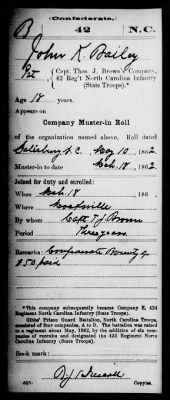 (Confederate.)
B 42 N.C.
John K. Bailey
Pvt., Capt. Thos. J. Brown's Company,
42 Reg't North Carolina Infantry
(State Troops).*
Age 18 years.
Appears on
Company Muster-in Roll
of the organization named above. Roll dated
Salisbury N.C. May 10, 1862
Muster-in to date Mch. 18, 1862
Joined for duty and enrolled:
When Mch. 18, 186
Where Mocksville
By whom Capt. T. J. Brown
Period 3 years
Remarks: Confederate Bounty of
$50 paid
*This company subsequently became Company E, 42d
Regiment North Carolina Infantry (State Troops).
Gibbs' Prison Guard Battalion, North Carolina Troops,
consisted of four companies, A to D. The battalion was raised
to a regiment about May, 1862, by the addition of six com-
panies of recruits and designated the 42d Regiment North
Carolina Infantry (State Troops).
Book mark:
Copyist.